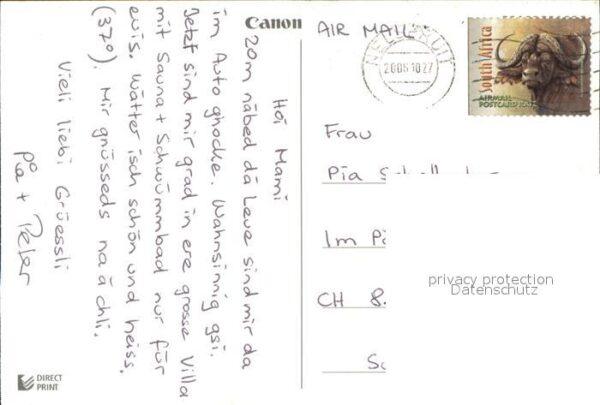 Canon
Hoi Mami
20m näbed dä Leue sind mir da
im Auto ghocke. Wahnsinnig gsi.
Jetzt sind mir grad in ere grosse Villa
mit Sauna + Schwümmbad nur für
euis. Wätter isch schön und heiss.
(37°). Mir gnüsseds na ä chli.
Vieli liebi Grüessli
Pia + Peter
DIRECT
PRINT
AIR MAIL
NELSPRUIT
2006 10 27
South Africa
AIRMAIL
POSTCARD RATE
Frau
Pia
Im
CH 8
privacy protection
Datenschutz